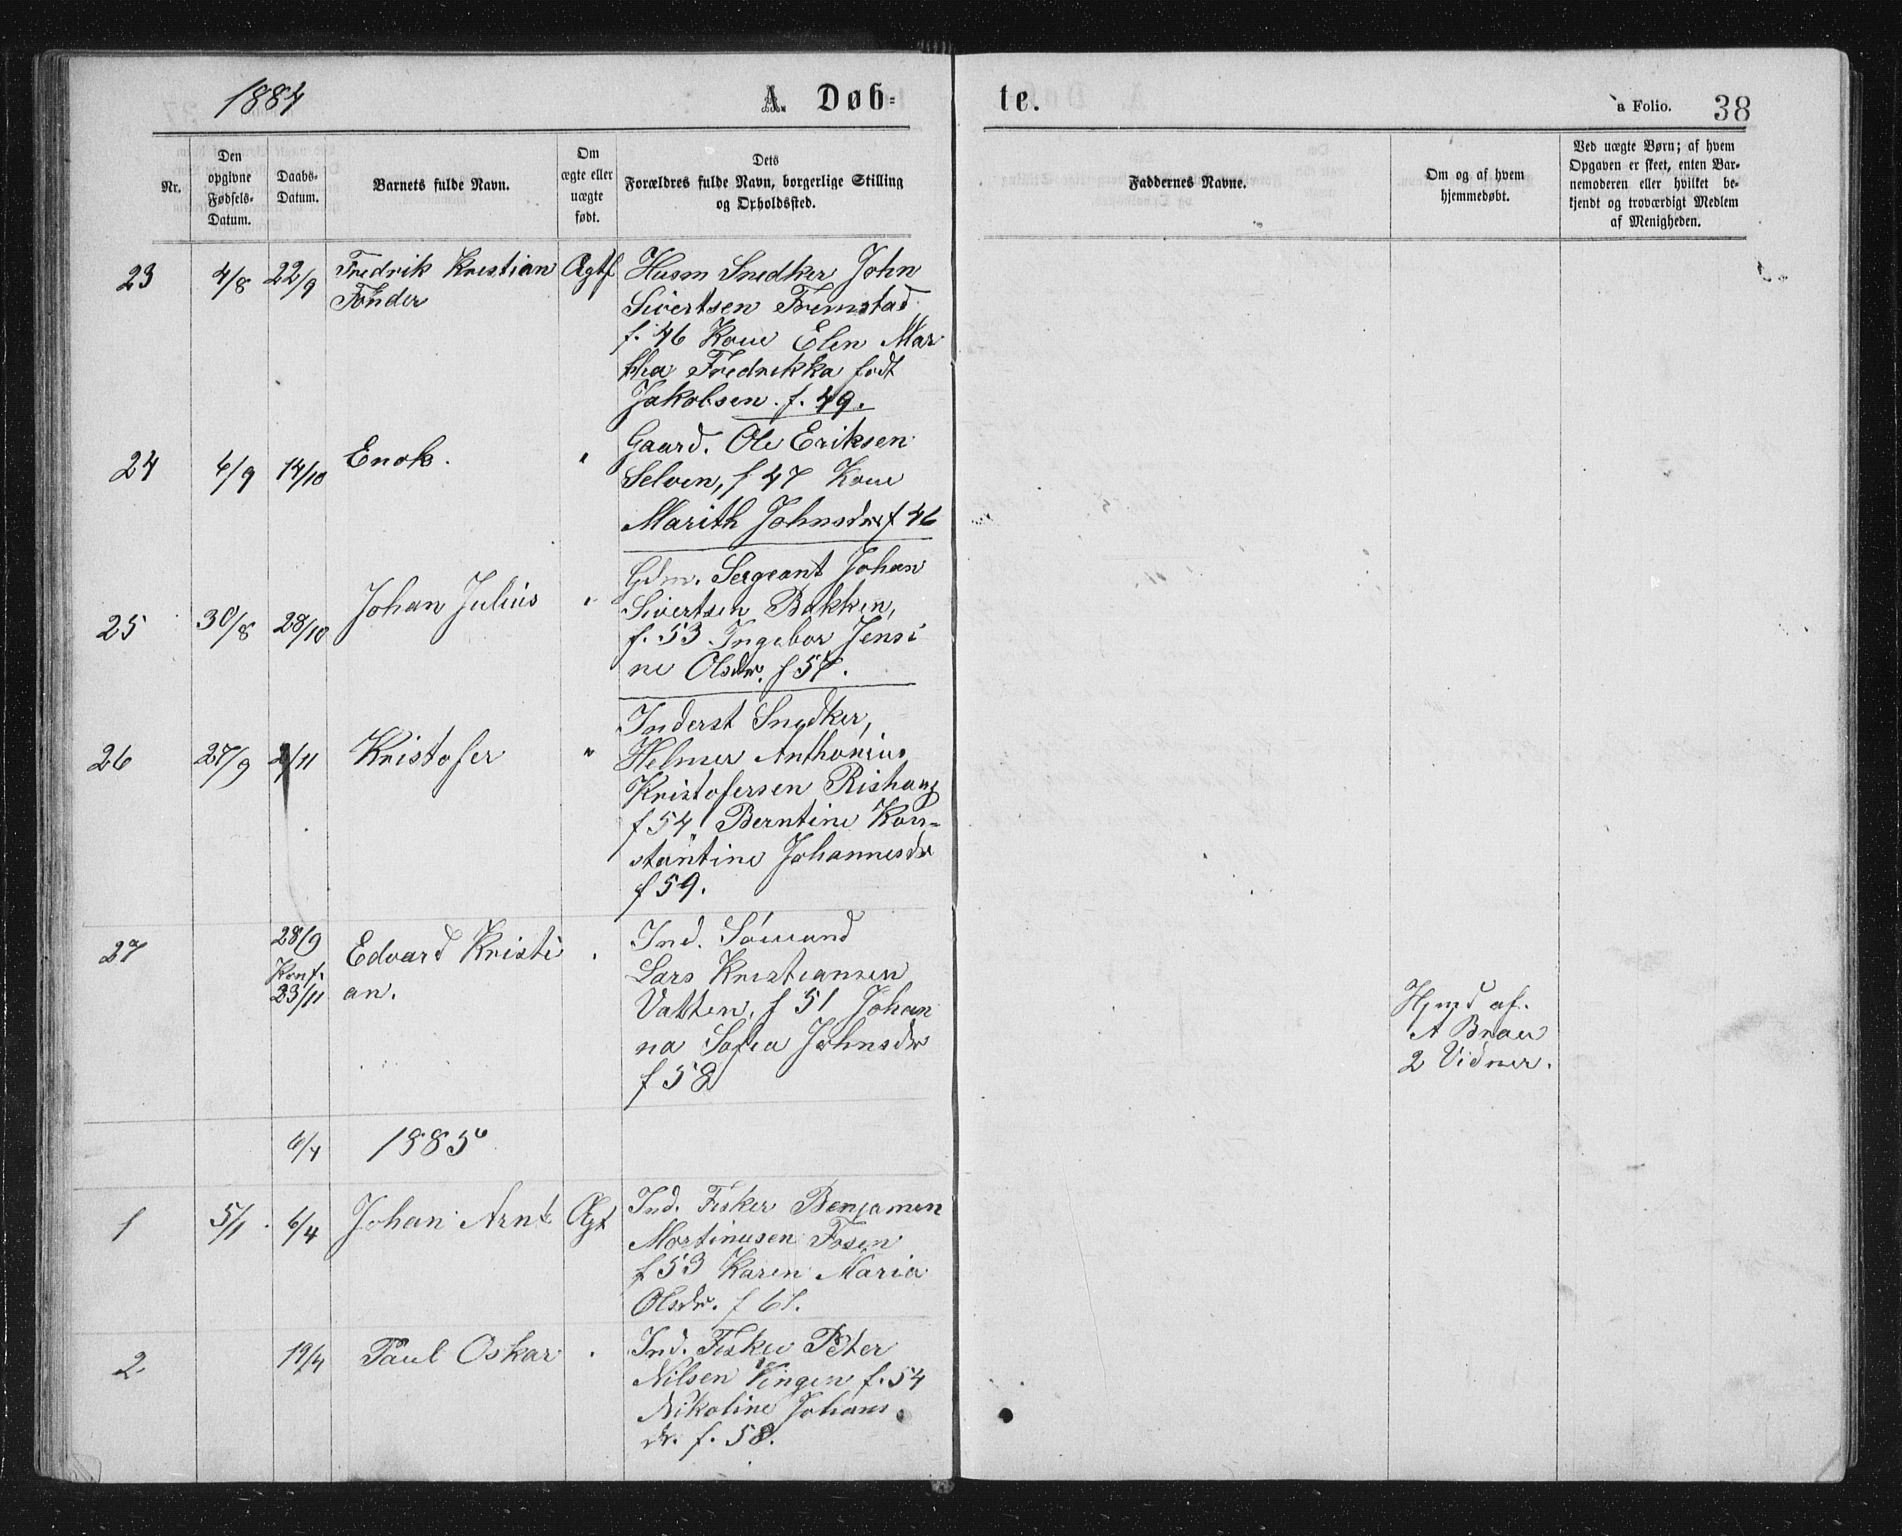 1884 A. Døb-te. a Folio. 38
Nr.
Den opgivne Fødsels-Datum.
Daabs-Datum.
Barnets fulde Navn.
Om ægte eller uægte født.
Dets Forældres fulde Navn, borgerlige Stilling og Opholdssted.
Faddernes Navne.
Om og af hvem hjemmedøbt.
Ved uægte Børn; af hvem Opgaven er skeet, enten Barnemoderen eller hvilket bekjendt og troværdigt Medlem af Menigheden.
23 4/8 22/9 Fredrik Kristian Ægtf Husm Snedker John
Fonder Sivertsen Fremstad
f. 46 Kone Elen Mar
thea Fredrikka født
Jakobsen. f. 49.
24 6/9 14/10 Enok. " Gaard. Ole Eriksen
Selven, f 47 Kone
Marith Johnsdr f 46
25 30/8 28/10 Johan Julius " Gdm. Sergeant Johan
Sivertsen Bakken,
f. 53 Ingebor Jensi
ne Olsdr. f 57.
26 27/9 2/11 Kristofer " Inderst Snedker,
Helmer Anthonius
Kristofersen Rishaug
f 54 Berntine Kon-
stantine Johannesdr
f 59.
27 28/9 Edvard Kristi " Ind. Sömand
Konf. 23/11 an. Lars Kristiansen
Vatten, f 51 Johan
na Sofia Johnsdr
f 58
Hjmd af.
A Brau
2 Vidner.
6/4 1885
1 5/1. 6/4 Johan Arnt Ægt Ind. Fisker Benjamen
Mortinusen Fosen
f 53 Karen Maria
Olsdr. f 61.
2 19/4 Paul Oskar " Ind. Fisker Peter
Nilsen Vingen f. 54
Nikoline Johans
dr. f. 58.